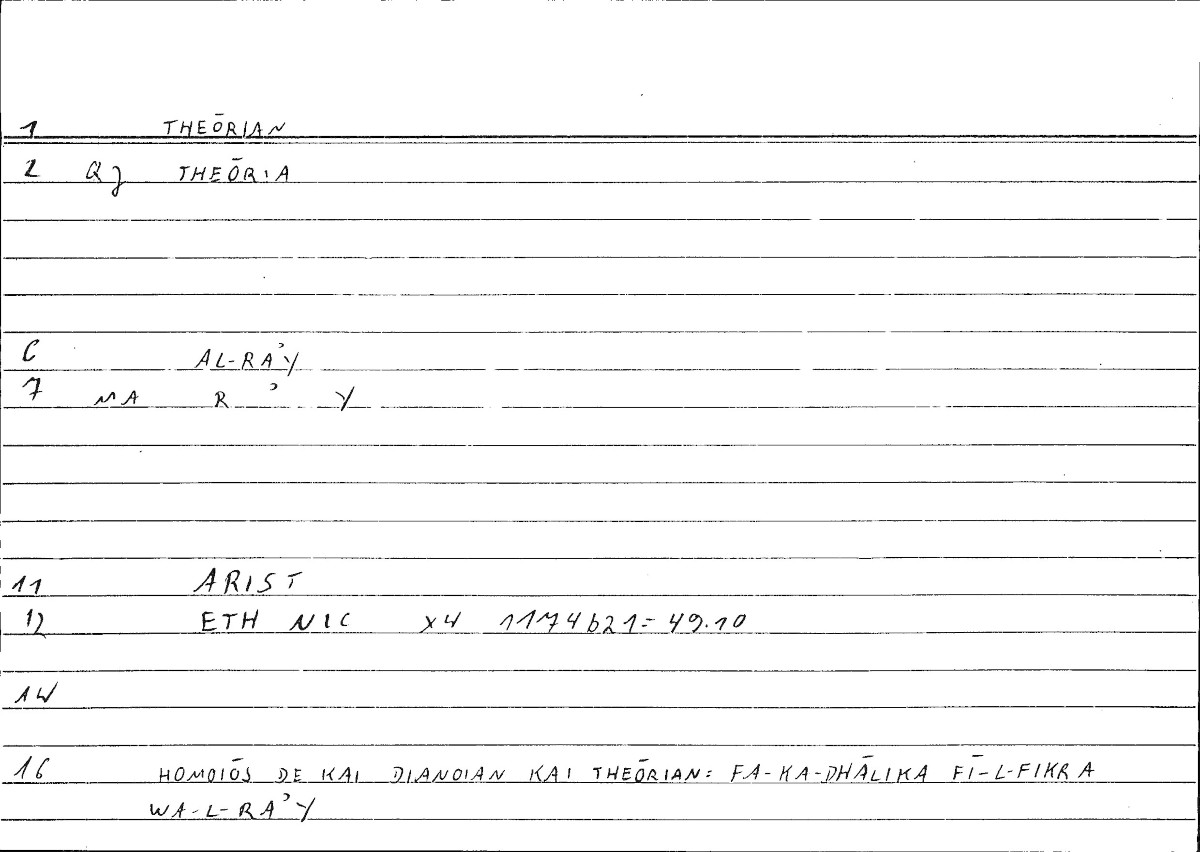 1 THEŌRIAN
2 QJ THEŌRIA
C AL-RAʾY
7 MA R ʾ Y
11 ARIST
12 ETH NIC X4 1174b21= 49.10
1W
16 HOMOIŌS DE KAI DIANOIAN KAI THEŌRIAN: FA-KA-DHĀLIKA FĪ-L-FIKRA
WA-L-RAʾY